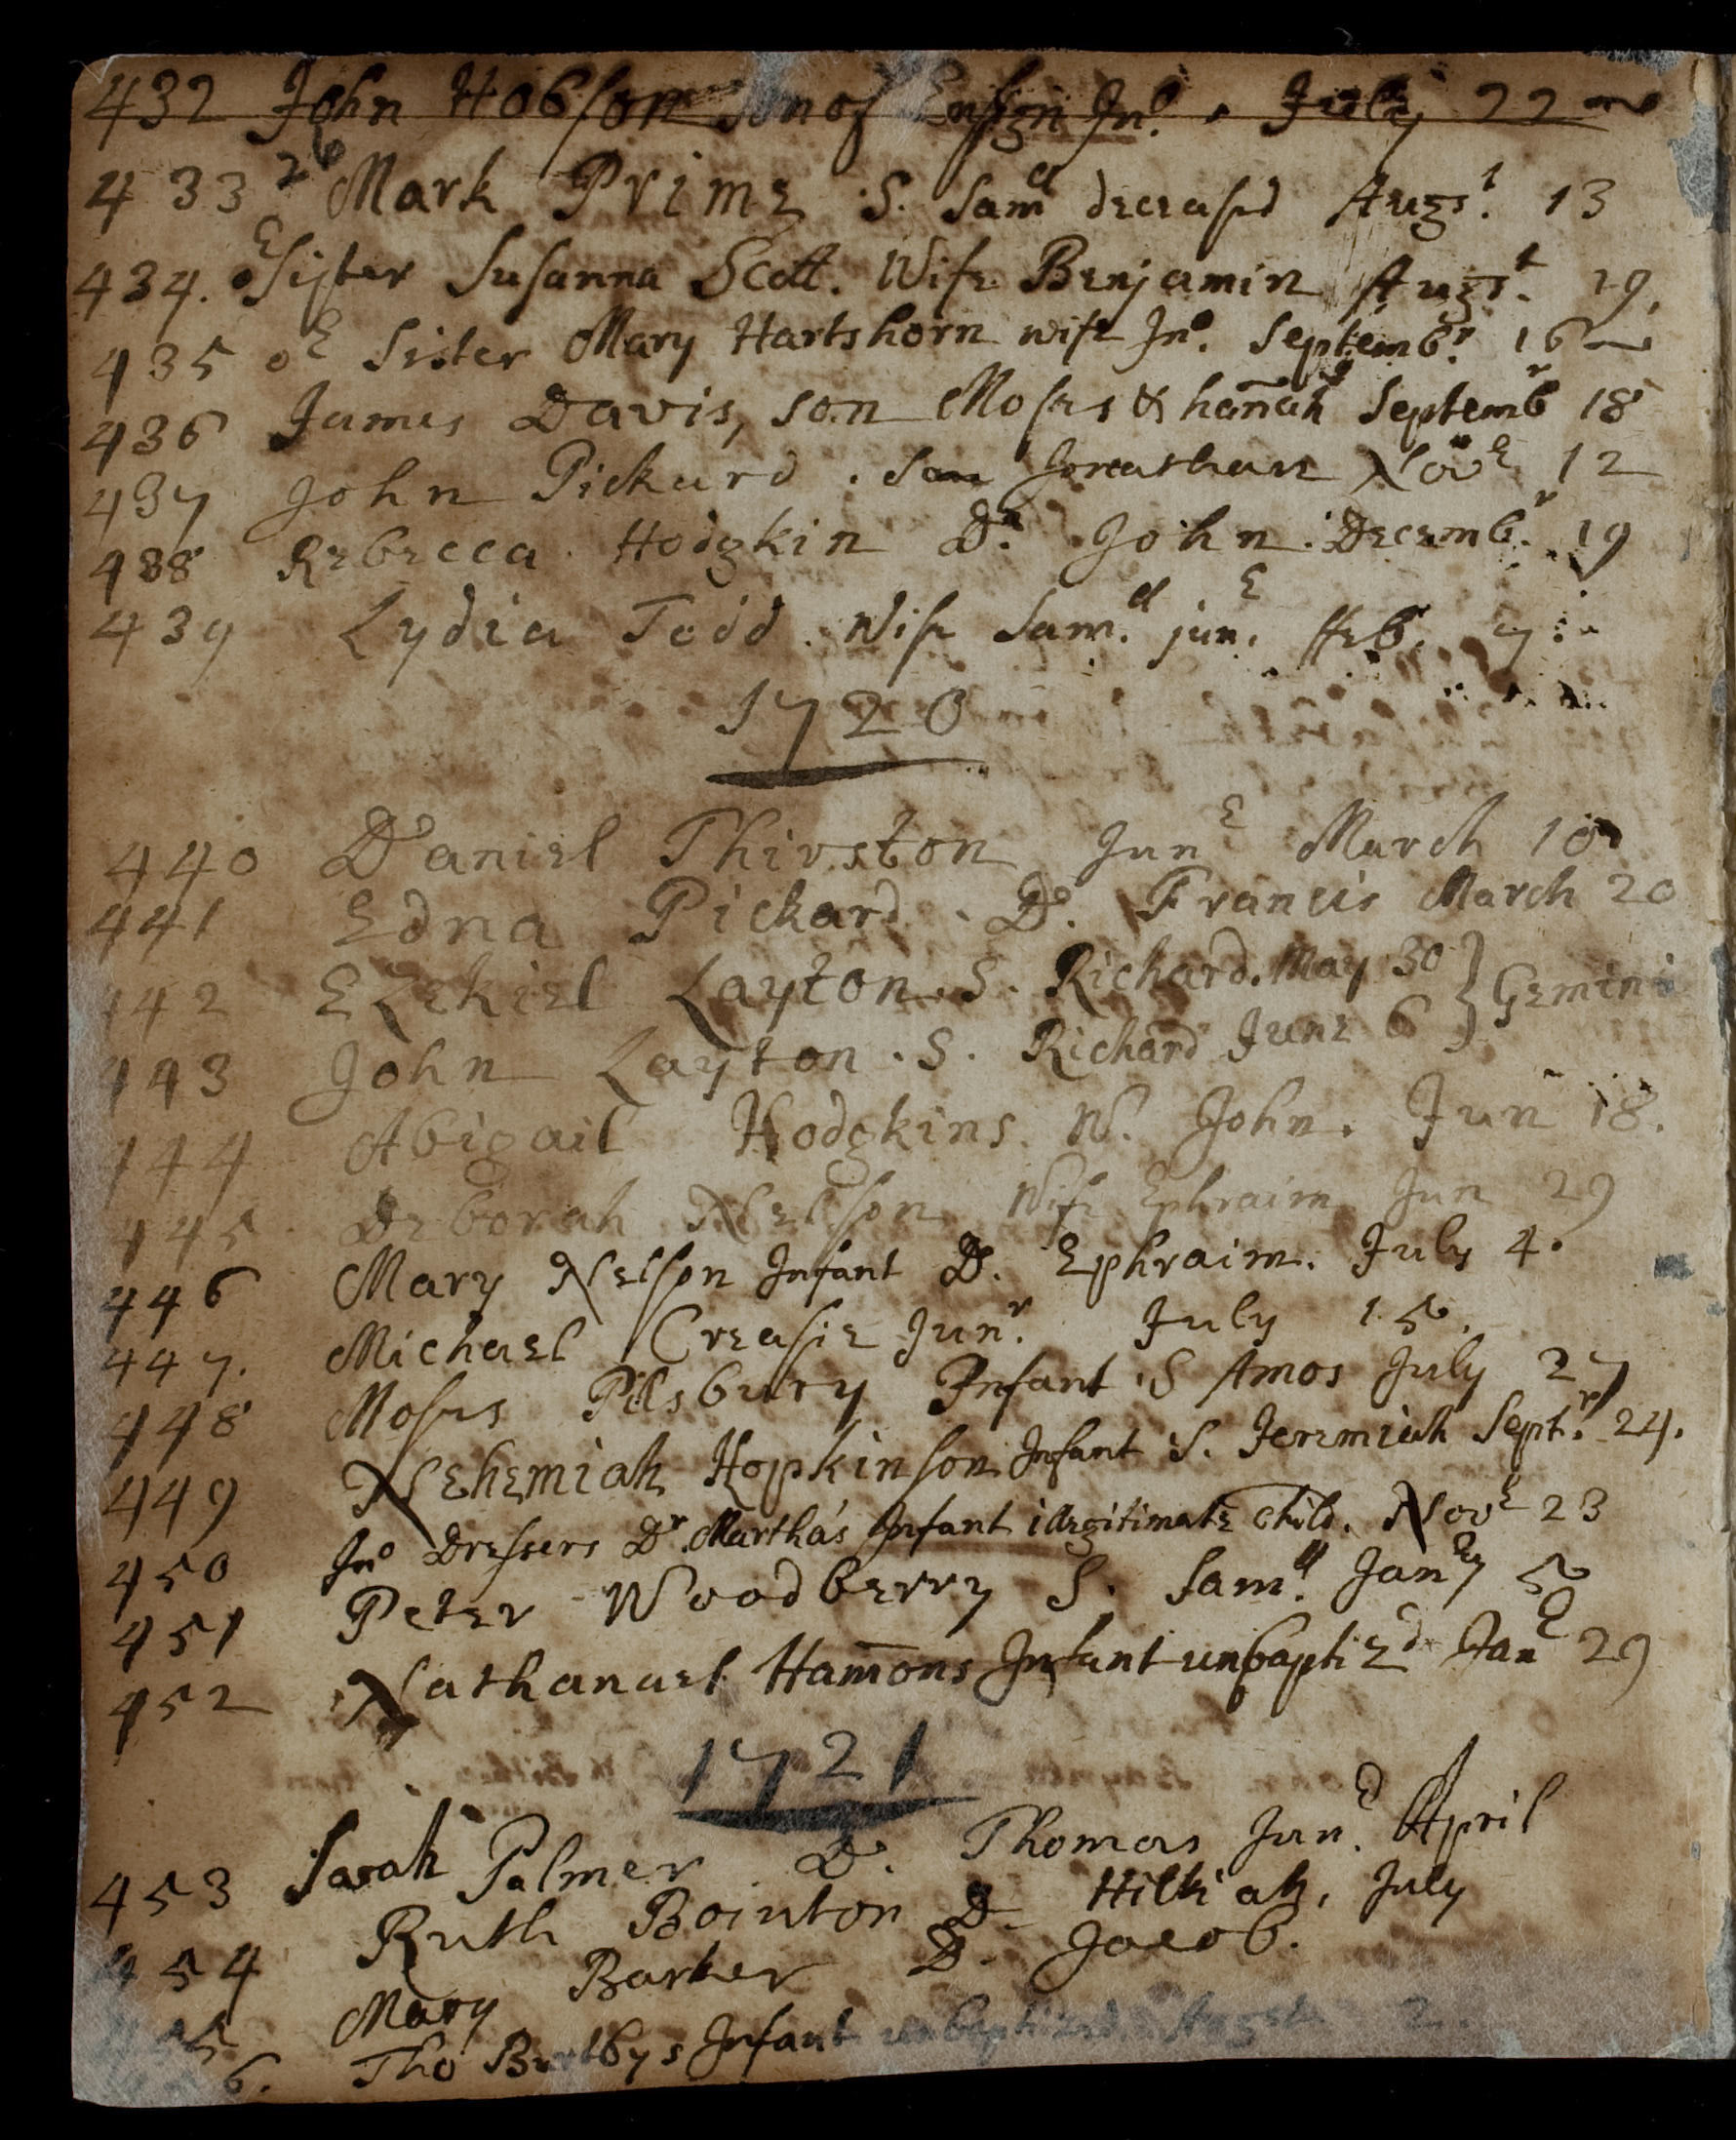 432 John Hobson son of Ensign Jno. July 22
433 Mark Prime S. Samll deceased Augst. 13
434. Sister Susanna Scott. Wife Benjamin Augst. 29.
435 Sister Mary Hartshorn wife Jno. Septembr. 16
436 James Davis, son Moses & hanah Septembr 18
437 John Pickard. son Jonathan Nove 12
438 Rebecca Hodgkin Dr. John. Decembr. 19
439 Lydia Todd. Wife Sam.ll jun. Feb. 7
1720
440 Daniel Thirston June March 18
441 Edna Pickard. D. Francis March 20
442 Ezekiel Layton. S. Richard. May 30 } Gemini
443 John Layton. S. Richard June 6
444 Abigail Hodgkins. W. John. Jun 18.
445 Deborah Nelson Wife Ephraim Jun 29
446 Mary Nelson Infant D. Ephraim. July 4.
447. Michael Creasie Junr. July 15.
448 Moses Pilsbury Infant S Amos July 27
449 Nehemiah Hopkinson Infant S. Jeremiah Septr. 24.
450 Jno Dressers Dr Martha's Infant illegitimate Child. Nove 23
451 Peter Woodberry S. Samll Jany 5
452 Nathanael Hamons Infant unbaptizd Jan 29
1721
453 Sarah Palmer D. Thomas Jun. April
454 Ruth Bointon D Hilkiah, July
455 Mary Barker D. Jacob.
6. Tho Infant unbaptized. August 2.